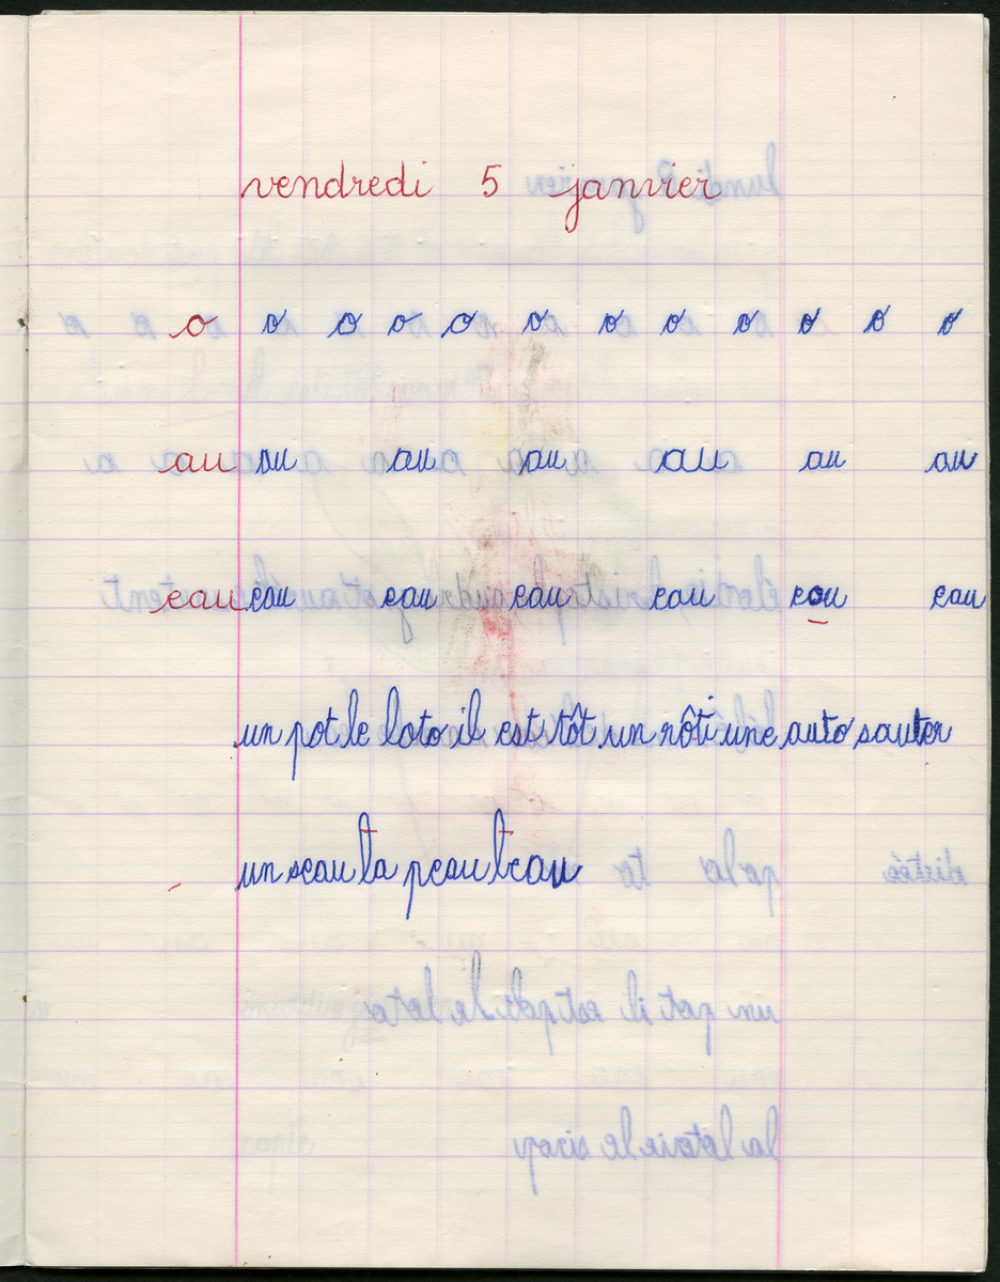 vendredi 5 janvier
o o o o o o o o o o o o
au au au au au au au
eau eau eau eau eau eau eau
un pot le loto il est tôt un rôti une auto sauter
un seau la peau l'eau